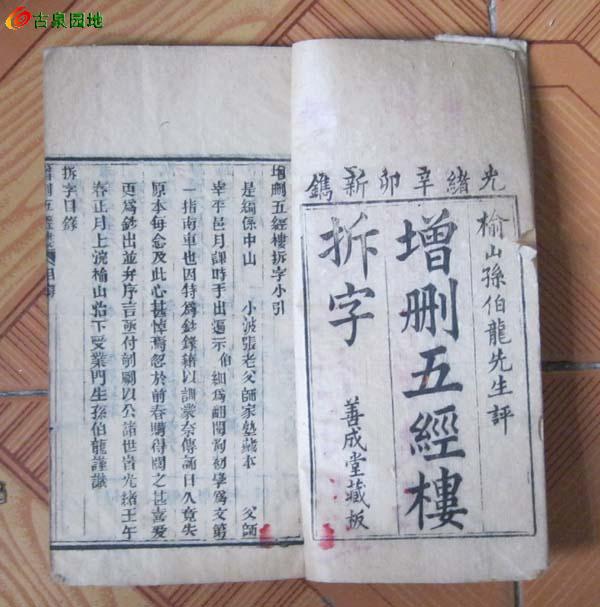 古泉园地
光緒辛卯新鐫
榆山孫伯龍先生評
增删五經樓
拆字
善成堂藏板
增刪五經樓拆字小引
是編係中山 小波張老父師家塾藏本 父師
宰平邑月課時手出還示伯細為翻閱洵初學為文第
一指南車也因特為鈔錄藉以訓蒙奈傳誦日久竟失
原本每念及此心甚悼焉忽於前春購得閱之甚喜爰
更為鈔出並弁序言亟付剞劂以公諸世旹光緒壬午
春正月上浣榆山治下受業門生孫伯龍謹識
拆字目錄